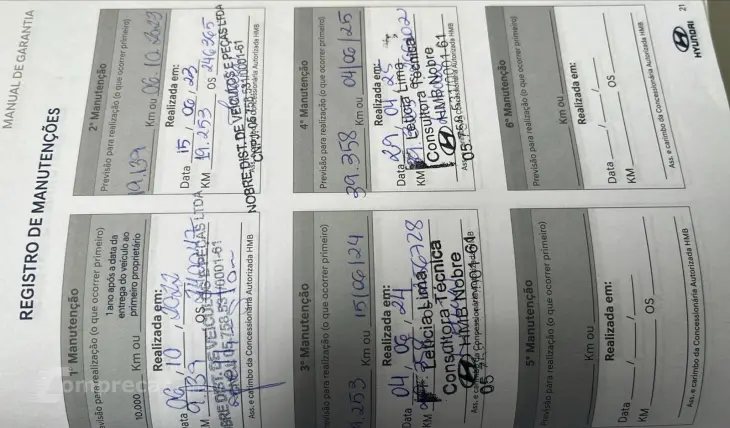 MANUAL DE GARANTIA
REGISTRO DE MANUTENÇÕES
1ª Manutenção
visão para realização (o que ocorrer primeiro)
10.000 Km ou
1 ano após a data da
entrega do veículo ao
primeiro proprietário
Realizada em:
Data 06 / 10 / 2022
KM 9.139 OS
NOBRE DIST. DE VEÍCULOS E PEÇAS LTDA
Ass. e carimbo da Concessionária Autorizada HMB
2ª Manutenção
Previsão para realização (o que ocorrer primeiro)
19.139 Km ou 06.10.2023
Realizada em:
Data 15 / 06 / 23
KM 19.253 OS 246365
NOBRE DIST. DE VEÍCULOS E PEÇAS LTDA
CNPJ: 05.758.531/0001-61
Ass. e carimbo da Concessionária Autorizada HMB
3ª Manutenção
Previsão para realização (o que ocorrer primeiro)
9.253 Km ou 15/06/24
Realizada em:
Data 04 / 06 / 24
KM
Letícia Lima
Consultora Técnica
HMB Nobre
Ass. e carimbo da Concessionária Autorizada HMB
4ª Manutenção
Previsão para realização (o que ocorrer primeiro)
39.358 Km ou 04/06/25
Realizada em:
Data 29 / 04 / 25
KM
Letícia Lima
Consultora Técnica
HMB Nobre
Ass. e carimbo da Concessionária Autorizada HMB
5ª Manutenção
Previsão para realização (o que ocorrer primeiro)
Km ou
Realizada em:
Data / /
KM OS
Ass. e carimbo da Concessionária Autorizada HMB
6ª Manutenção
Previsão para realização (o que ocorrer primeiro)
Km ou
Realizada em:
Data / /
KM OS
Ass. e carimbo da Concessionária Autorizada HMB
HYUNDAI
21